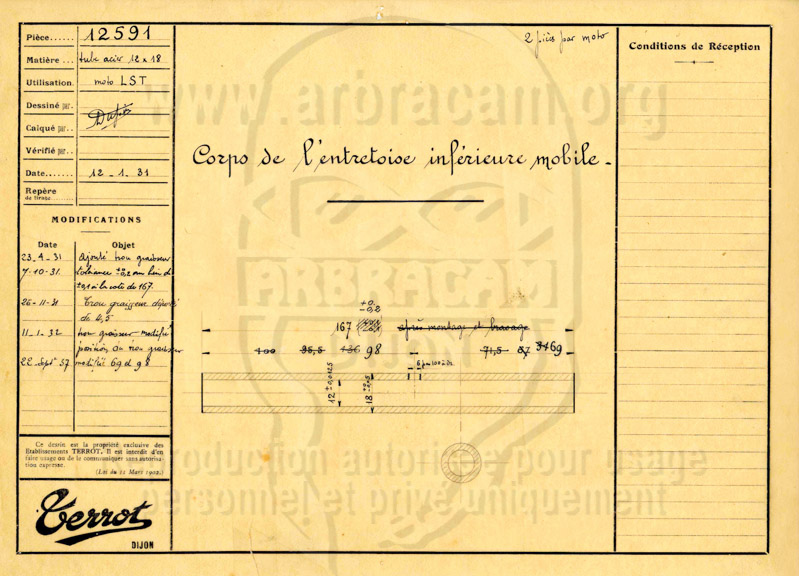 Pièce...... 12591
Matière ... tube acier 12 x 18
Utilisation. moto LST
Dessiné par.
Calqué par..
Vérifié par..
Date....... 12 - 1. 31
Repère
de tirage
MODIFICATIONS
Date Objet
23_4_31 ajouté trou graisseur
7-10-31. tolérance ±0,2 au lieu de
±0,1 à la cote de 167.
26-11-31 Trou graisseur déporté
de 4,5
11_1_32 trou graisseur modifié
position du trou graisseur
22 Septe 57 modifié 69 et 98
Ce dessin est la propriété exclusive des
Etablissements TERROT. Il est interdit d'en
faire usage ou de le communiquer sans autorisa-
tion expresse.
(Loi du 11 Mars 1902.)
Terrot
DIJON
2 pièces par moto
Corps de l'entretoise inférieure mobile_
+0,
-0,2
167 après montage et brasage
100 95,5 136 98 71,5 67 69
12 ±0,0125
18
Conditions de Réception
www.arbracam.org
ARBRACAM
DIJON
Reproduction autorisée pour usage
personnel et privé uniquement